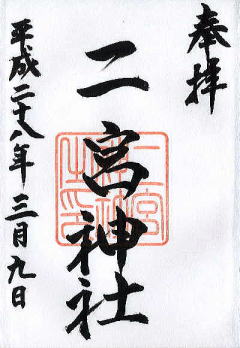 奉拝
二宮神社
平成二十八年三月九日